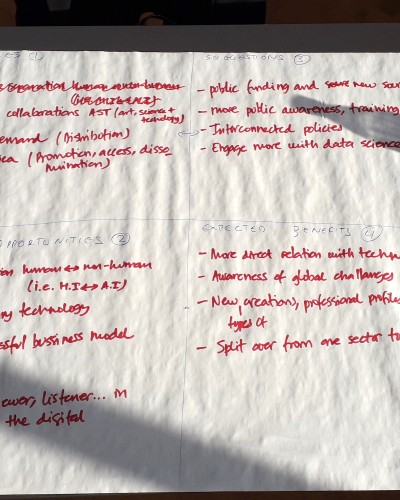 collaborations AST (art, science+
technology)
emand (Distribution)
(Promotion, access, disse
mination)
SUGGESTIONS 3
- public funding and new sour
- more public awareness, training
- Interconnected policies
- Engage more with data science
PPORTUNITIES 2
ion human ↔ non-human
(i.e. H.I ↔ A.I)
ng technology
essful bussiness model
ewer, listener... M
the digital
EXPECTED BENEFITS 4
- More direct relation with techn
- Awareness of global challanges
- New creations, professional profile
types of
- Split over from one sector to